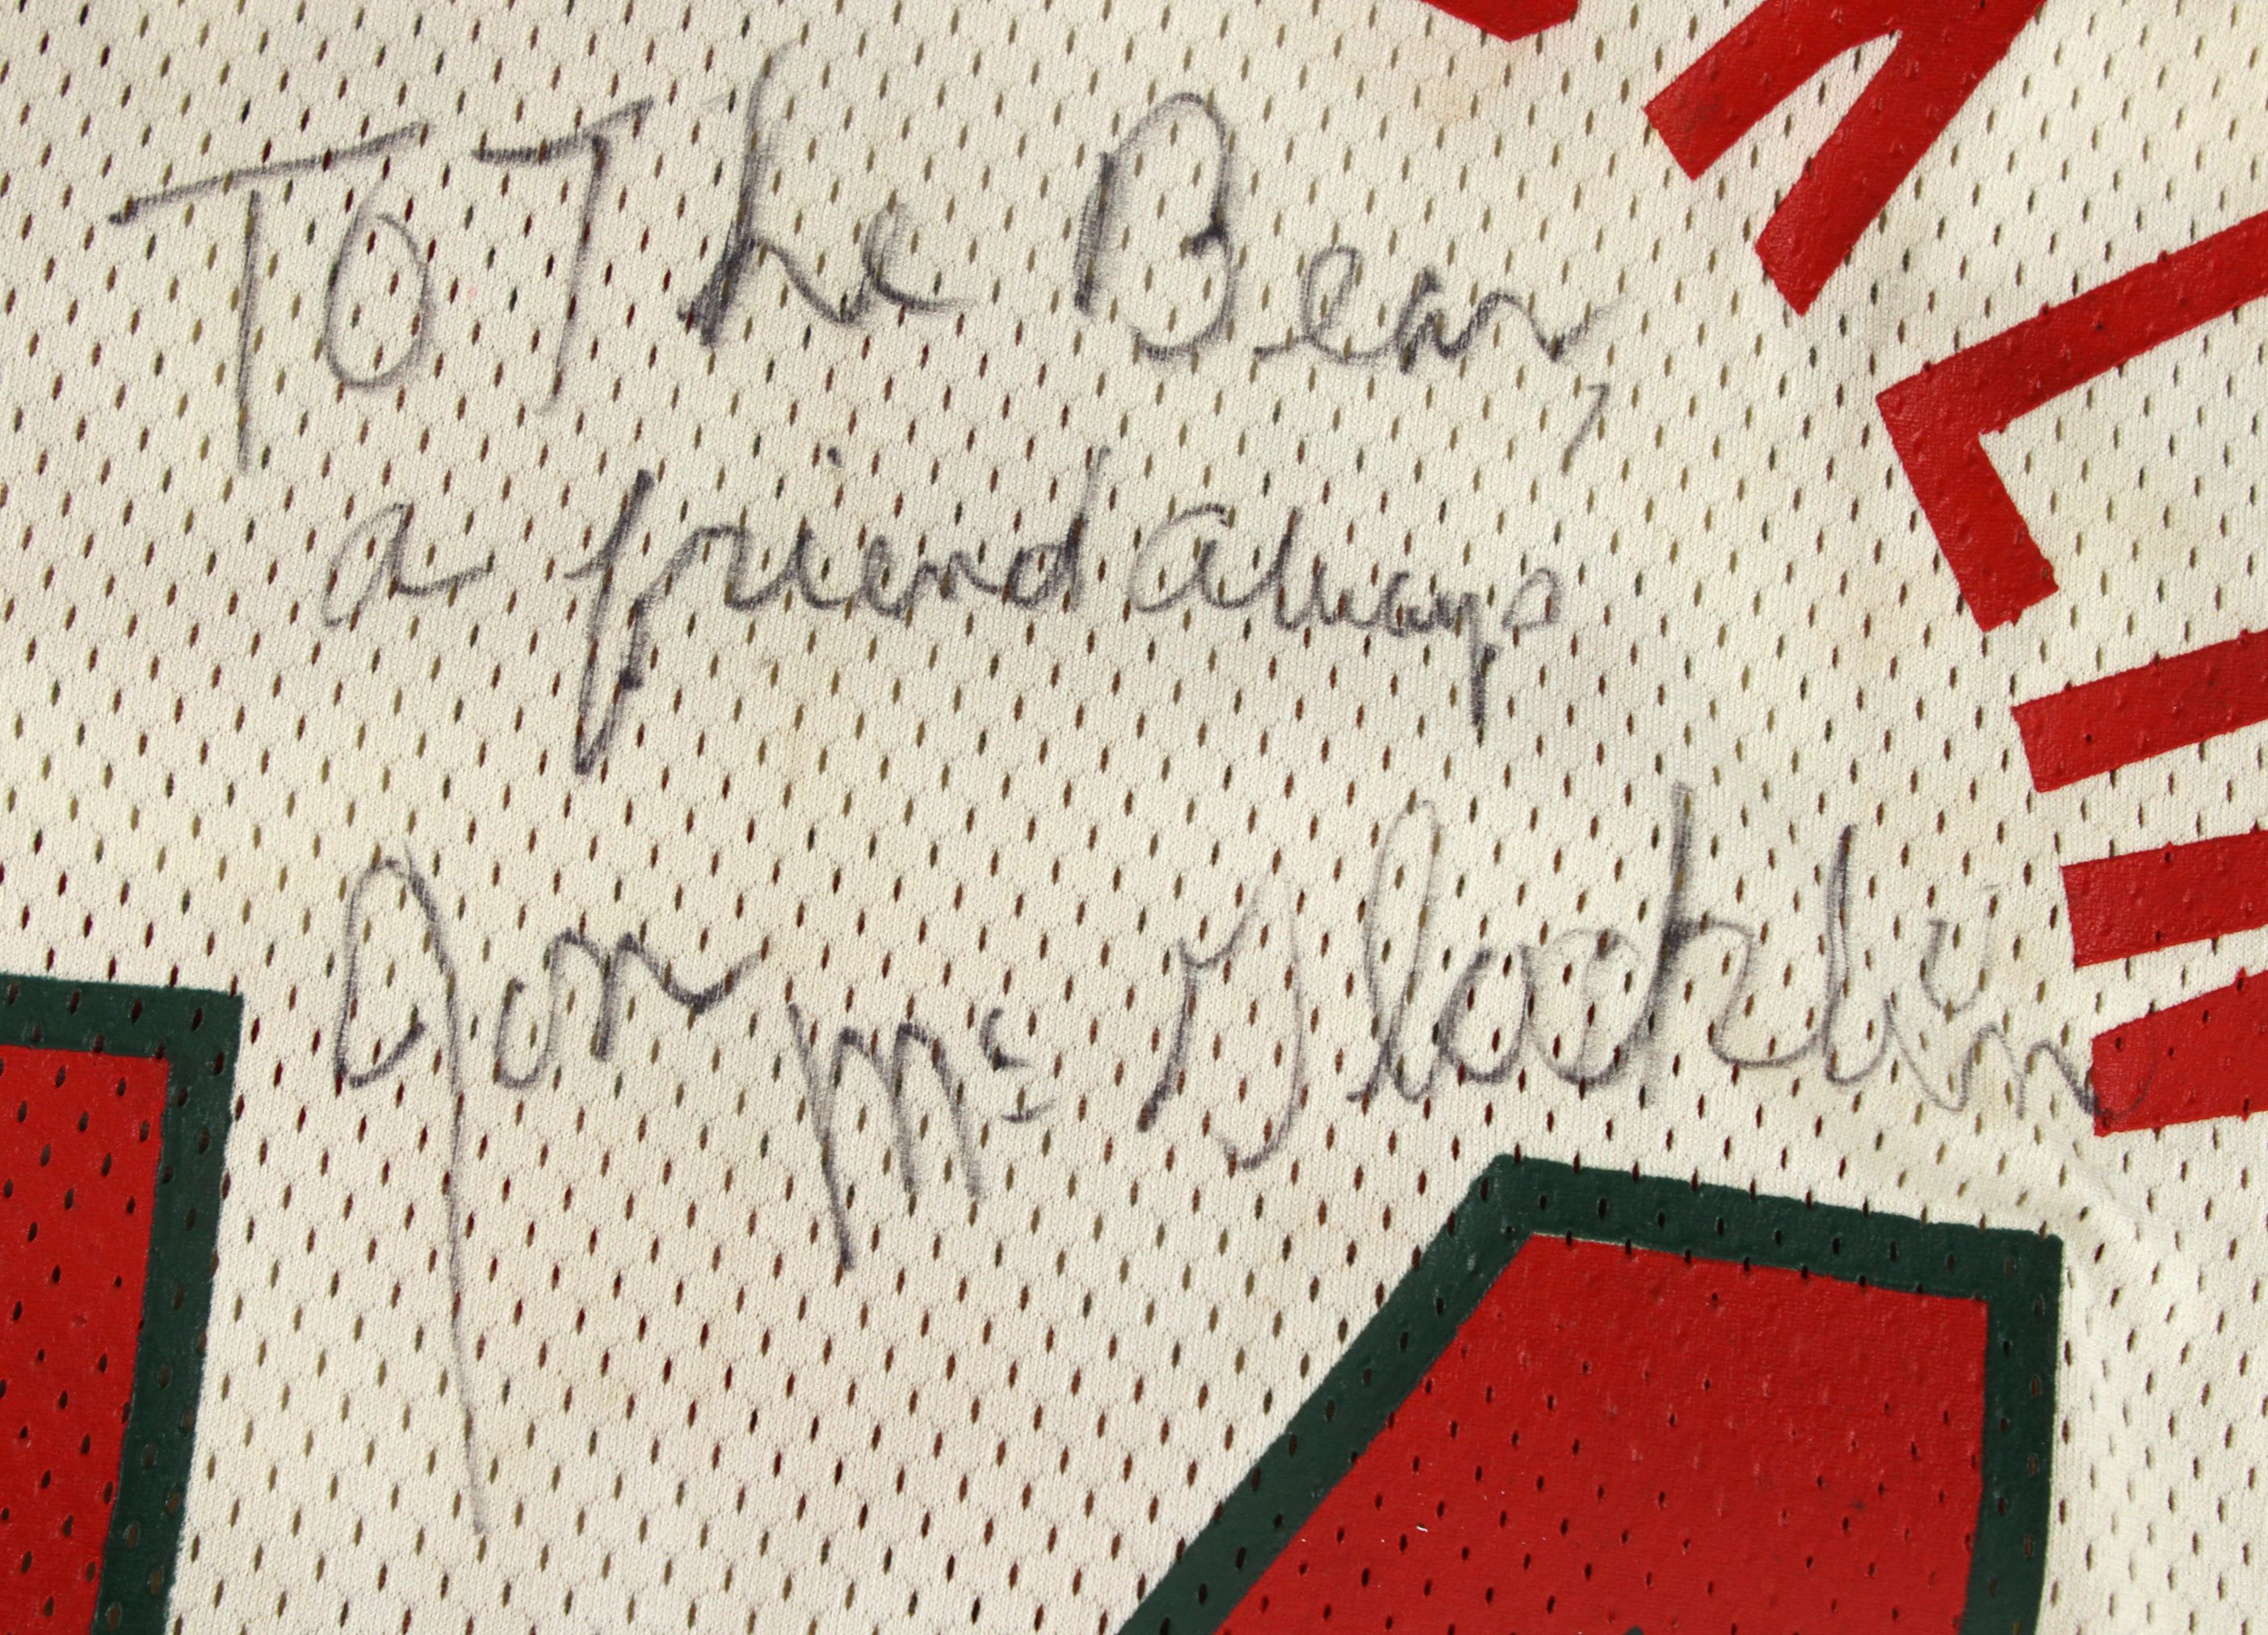 To The Bear,
a friend always
Jon McGlocklin